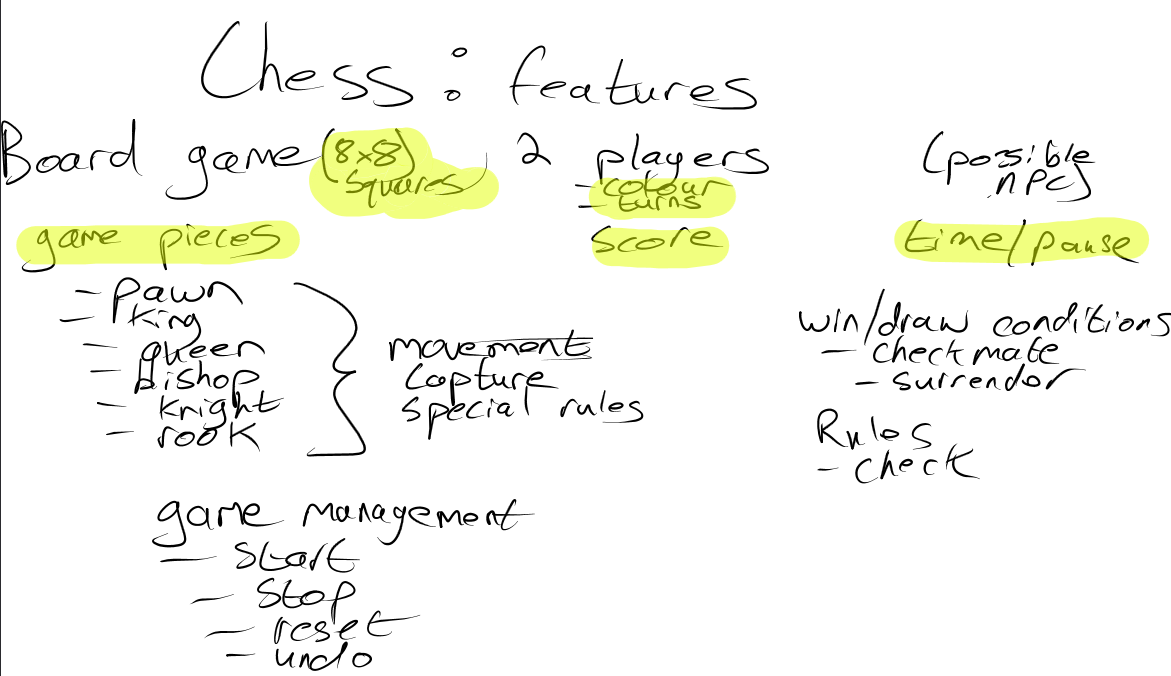 Chess: features
Board game (8x8) squares, 2 players (possible NPC)
- colour
- turns
game pieces score time/pause
- Pawn
- King
- queen
- bishop
- knight
- rook
movement
capture
special rules
win/draw conditions
- checkmate
- surrender
Rules
- check
game management
- start
- stop
- reset
- undo